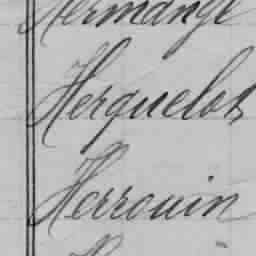 Hermange
Herquelot
Herrouin